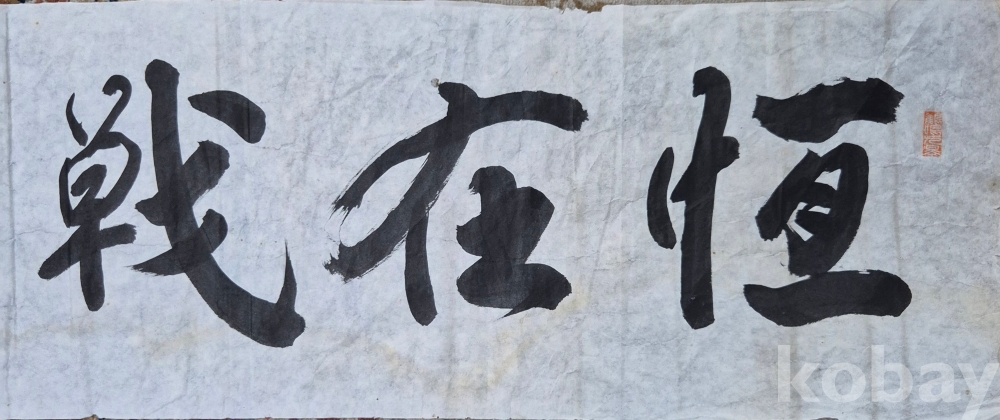 恒在戦
kobay